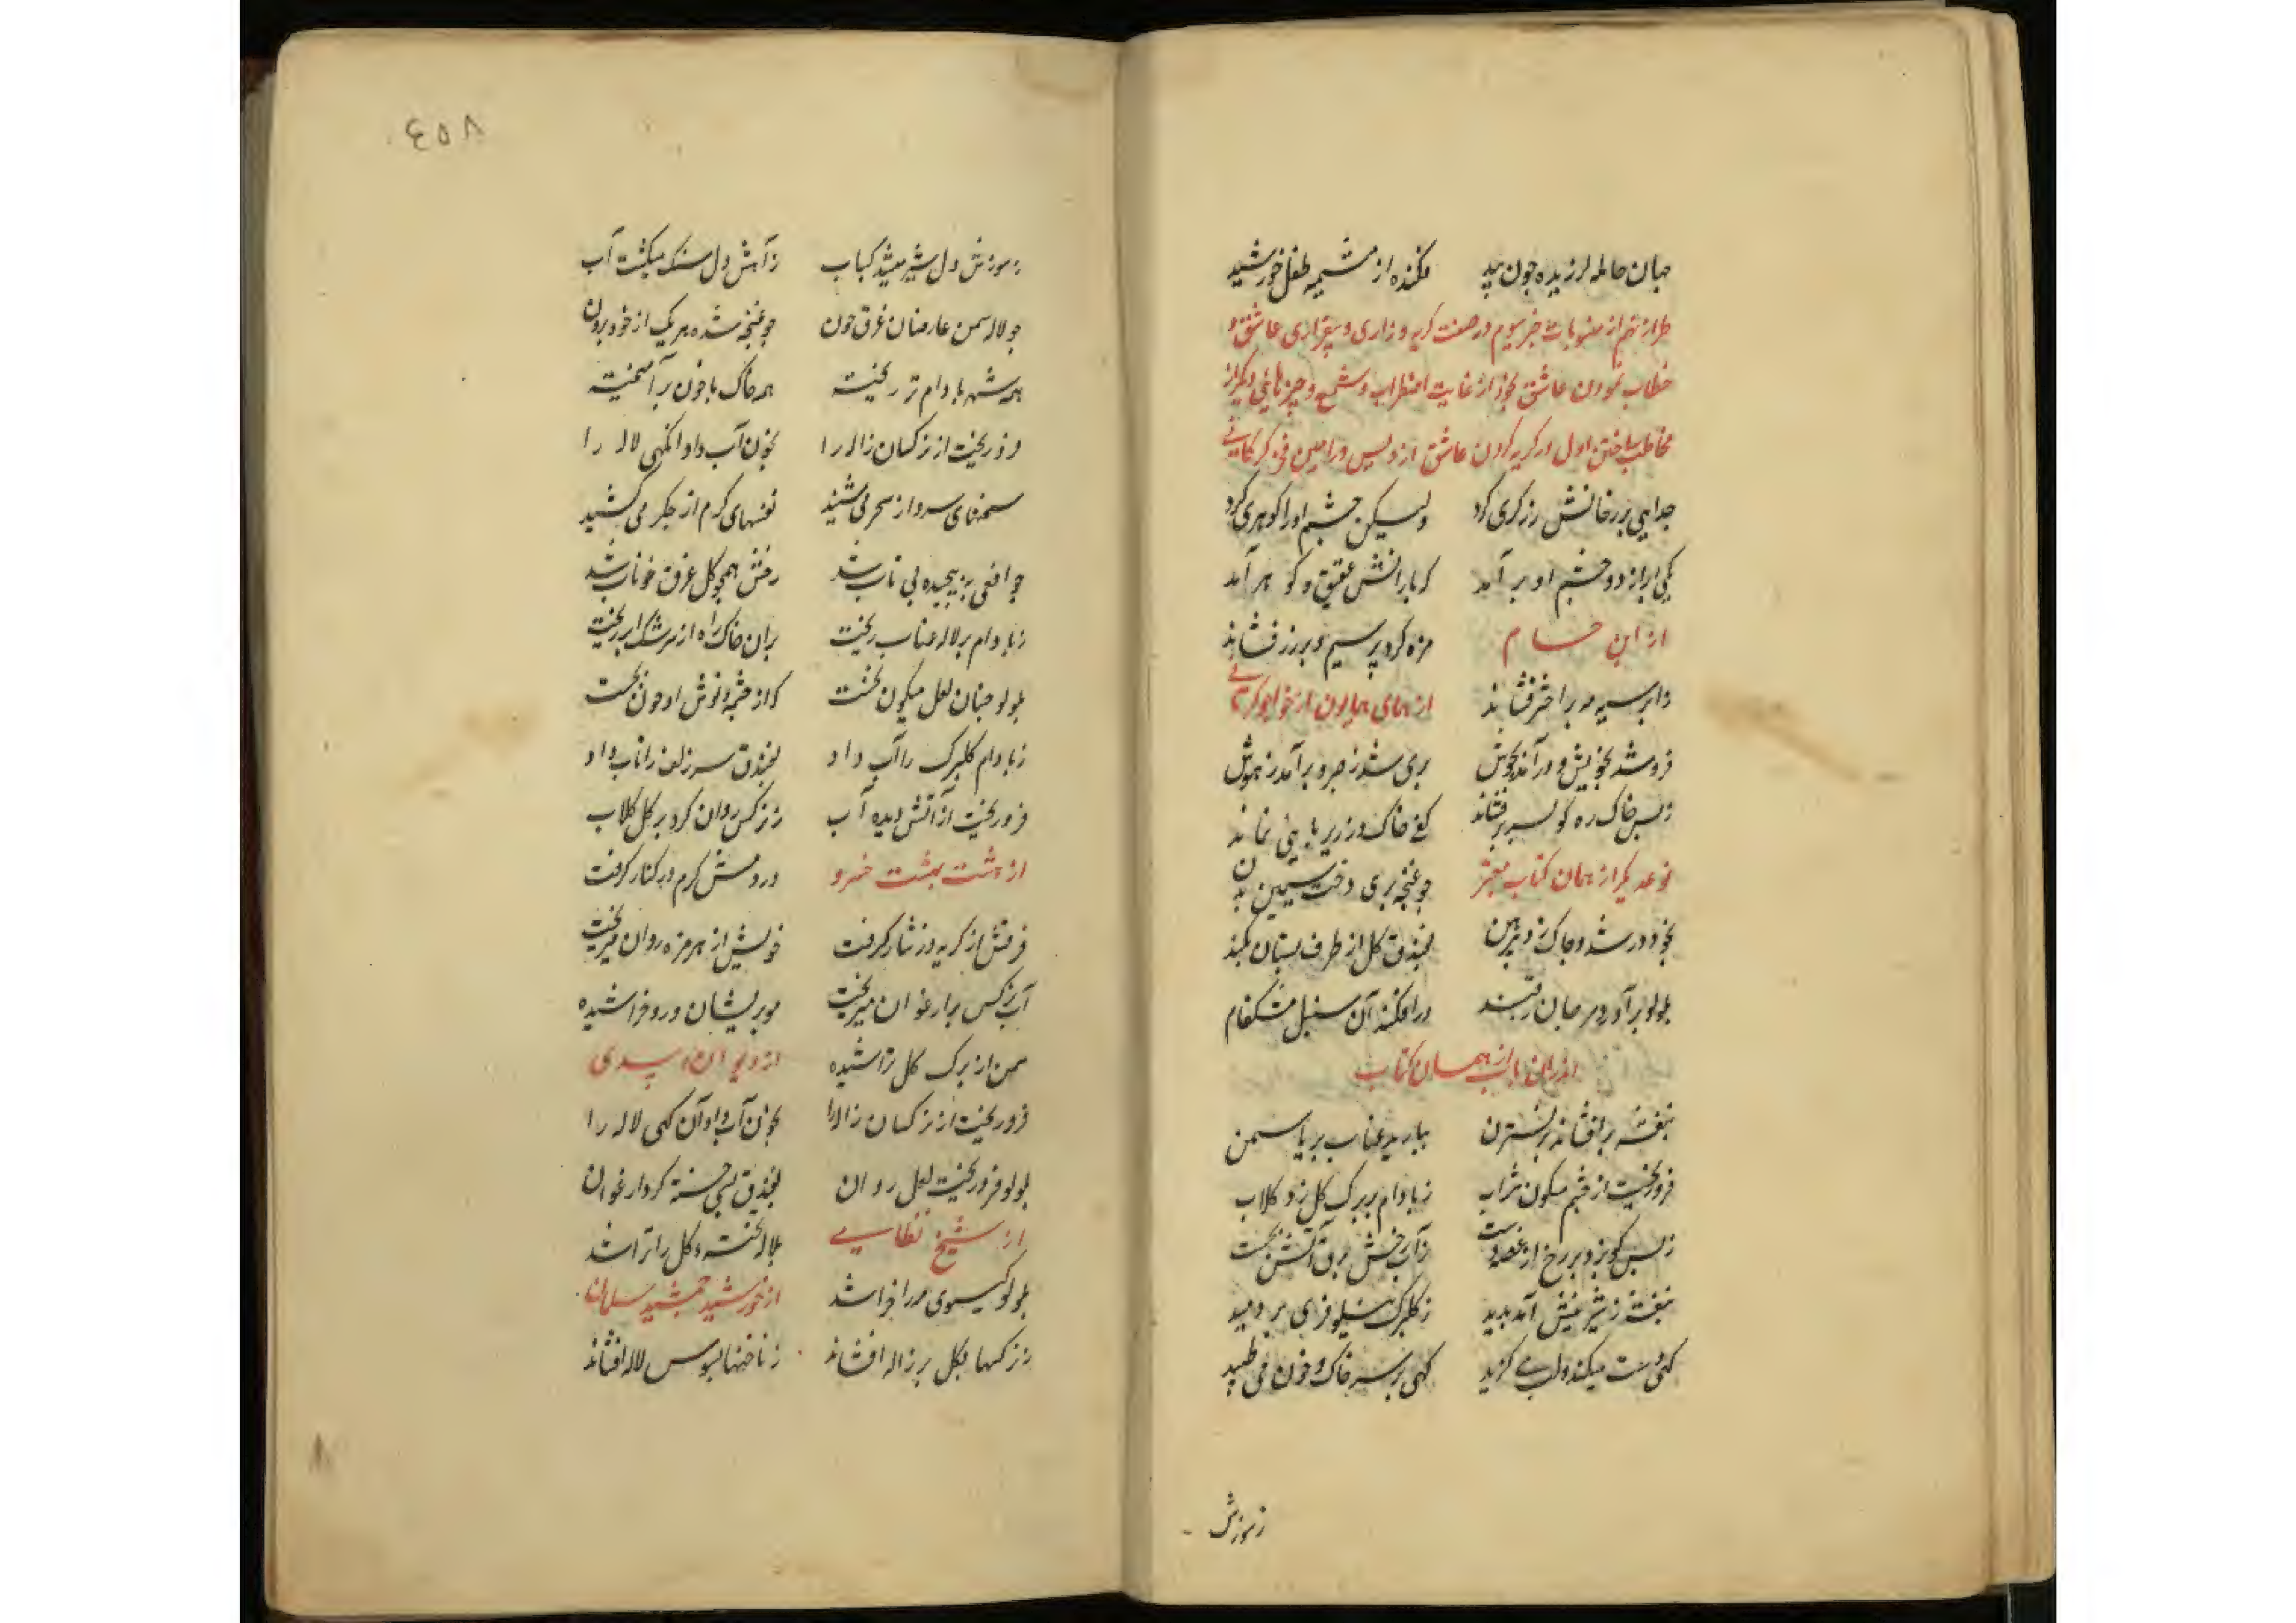 جهان حامله لرزیده چون بید فکنده از مشیمه طفل خورشید
طراز نهم از منسوبات خبر سیوم در صفت کریه و زاری و بیقراری عاشق و
خطاب نمودن عاشق بخود از غایت اضطراب و شمع و چیزهائی دیکر از
مخاطب ساختن اول در کریه کردن عاشق از ویس و رامین فخر کرکانی
جدایی بر رخانش زرکری کرد ولیکن چشم او را کوهری کرد
یکی ابر از دو چشم او بر آمد که بارانش عقیق و کوهر آمد
از ابن حسام مژه کرد پرسیم و بر زر فشاند
دابر سیه مه بر اختر فشاند از همای همایون از خواجو کرمانی
فرو شد بخویش و در آمد بجوش بری شد ز صبر و بر آمد ز هوش
زبس خاک ره کو بسر بر فشاند کف خاک در زیر پایی نماند
نوعدیکر از همان کتاب معتبر چو غنچه بری دخت سیمین بدن
بخود در شد و چاک زد پیرهن بفندق کل از طرف بستان بکند
بلولو بر آورد مرجان ز قند در افکند آن سنبل مشکفام
از همان کتاب
بنفشه بر افشاند بر نسترن ببارید عناب بر یاسمن
فرو ریخت از چشم میکون شراب ز بادام بر برک کل زد کلاب
زبس کو بزد بر رخ از غصه دست ز آب رخش برق آتش بجست
بنفشه ز شیر نیش آمد بدید ز کلبرک نیلوفری بر دمید
کهی دست میکند و لب می کزید کهی بر سر خاک و خون می طپید
زسوزش
٤٥٨
زسوزش دل شیر میشد کباب زآهش دل سنک میکشت آب
چو لاله سمن عارضان غرق خون چو غنچه شده هر یک از خود برون
همه شهر بادام تر ریخته همه خاک با خون بر آمیخته
فرو ریخت از نرکسان ژاله را بخون آب داد انکهی لاله را
سخنهای سرد از سحر می شنید نفسهای کرم از جکر می کشید
چو افعی به پیچیده بی تاب شد رخش همچو کل غرق خوناب شد
ز بادام بر لاله عناب ریخت بران خاک راه از سرشک ابر ریخت
بلولو چنان لعل میکون بخست که از چشمه نوش او خون بجست
ز بادام کلبرک را آب داد بفندق سر زلف را تاب داد
فرو ریخت از آتش دیده آب ز نرکس روان کرد بر کل کلاب
از هشت بهشت خسرو در دمش کرم در کنار کرفت
فرقش از کریه در نثار کرفت خونش از هر مژه روان میریخت
آب نرکس بر ارغوان میریخت مو پریشان و رو خراشیده
سمن از برک کل تراشیده از دیوان اسدی
فرو ریخت از نرکسان ژاله را بخون آب داد آن کهی لاله را
بلولو فرو ریخت لعل روان بفندق بسی خسته کرد ارغوان
از شیخ نظامی بلاله بخست و کل را تراشد
بلولو کیسوی مه را خراشد از خورشید جمشید سلمان
ز نرکسها بکل بر ژاله افشاند ز ناخنها بسوسن لاله افشاند